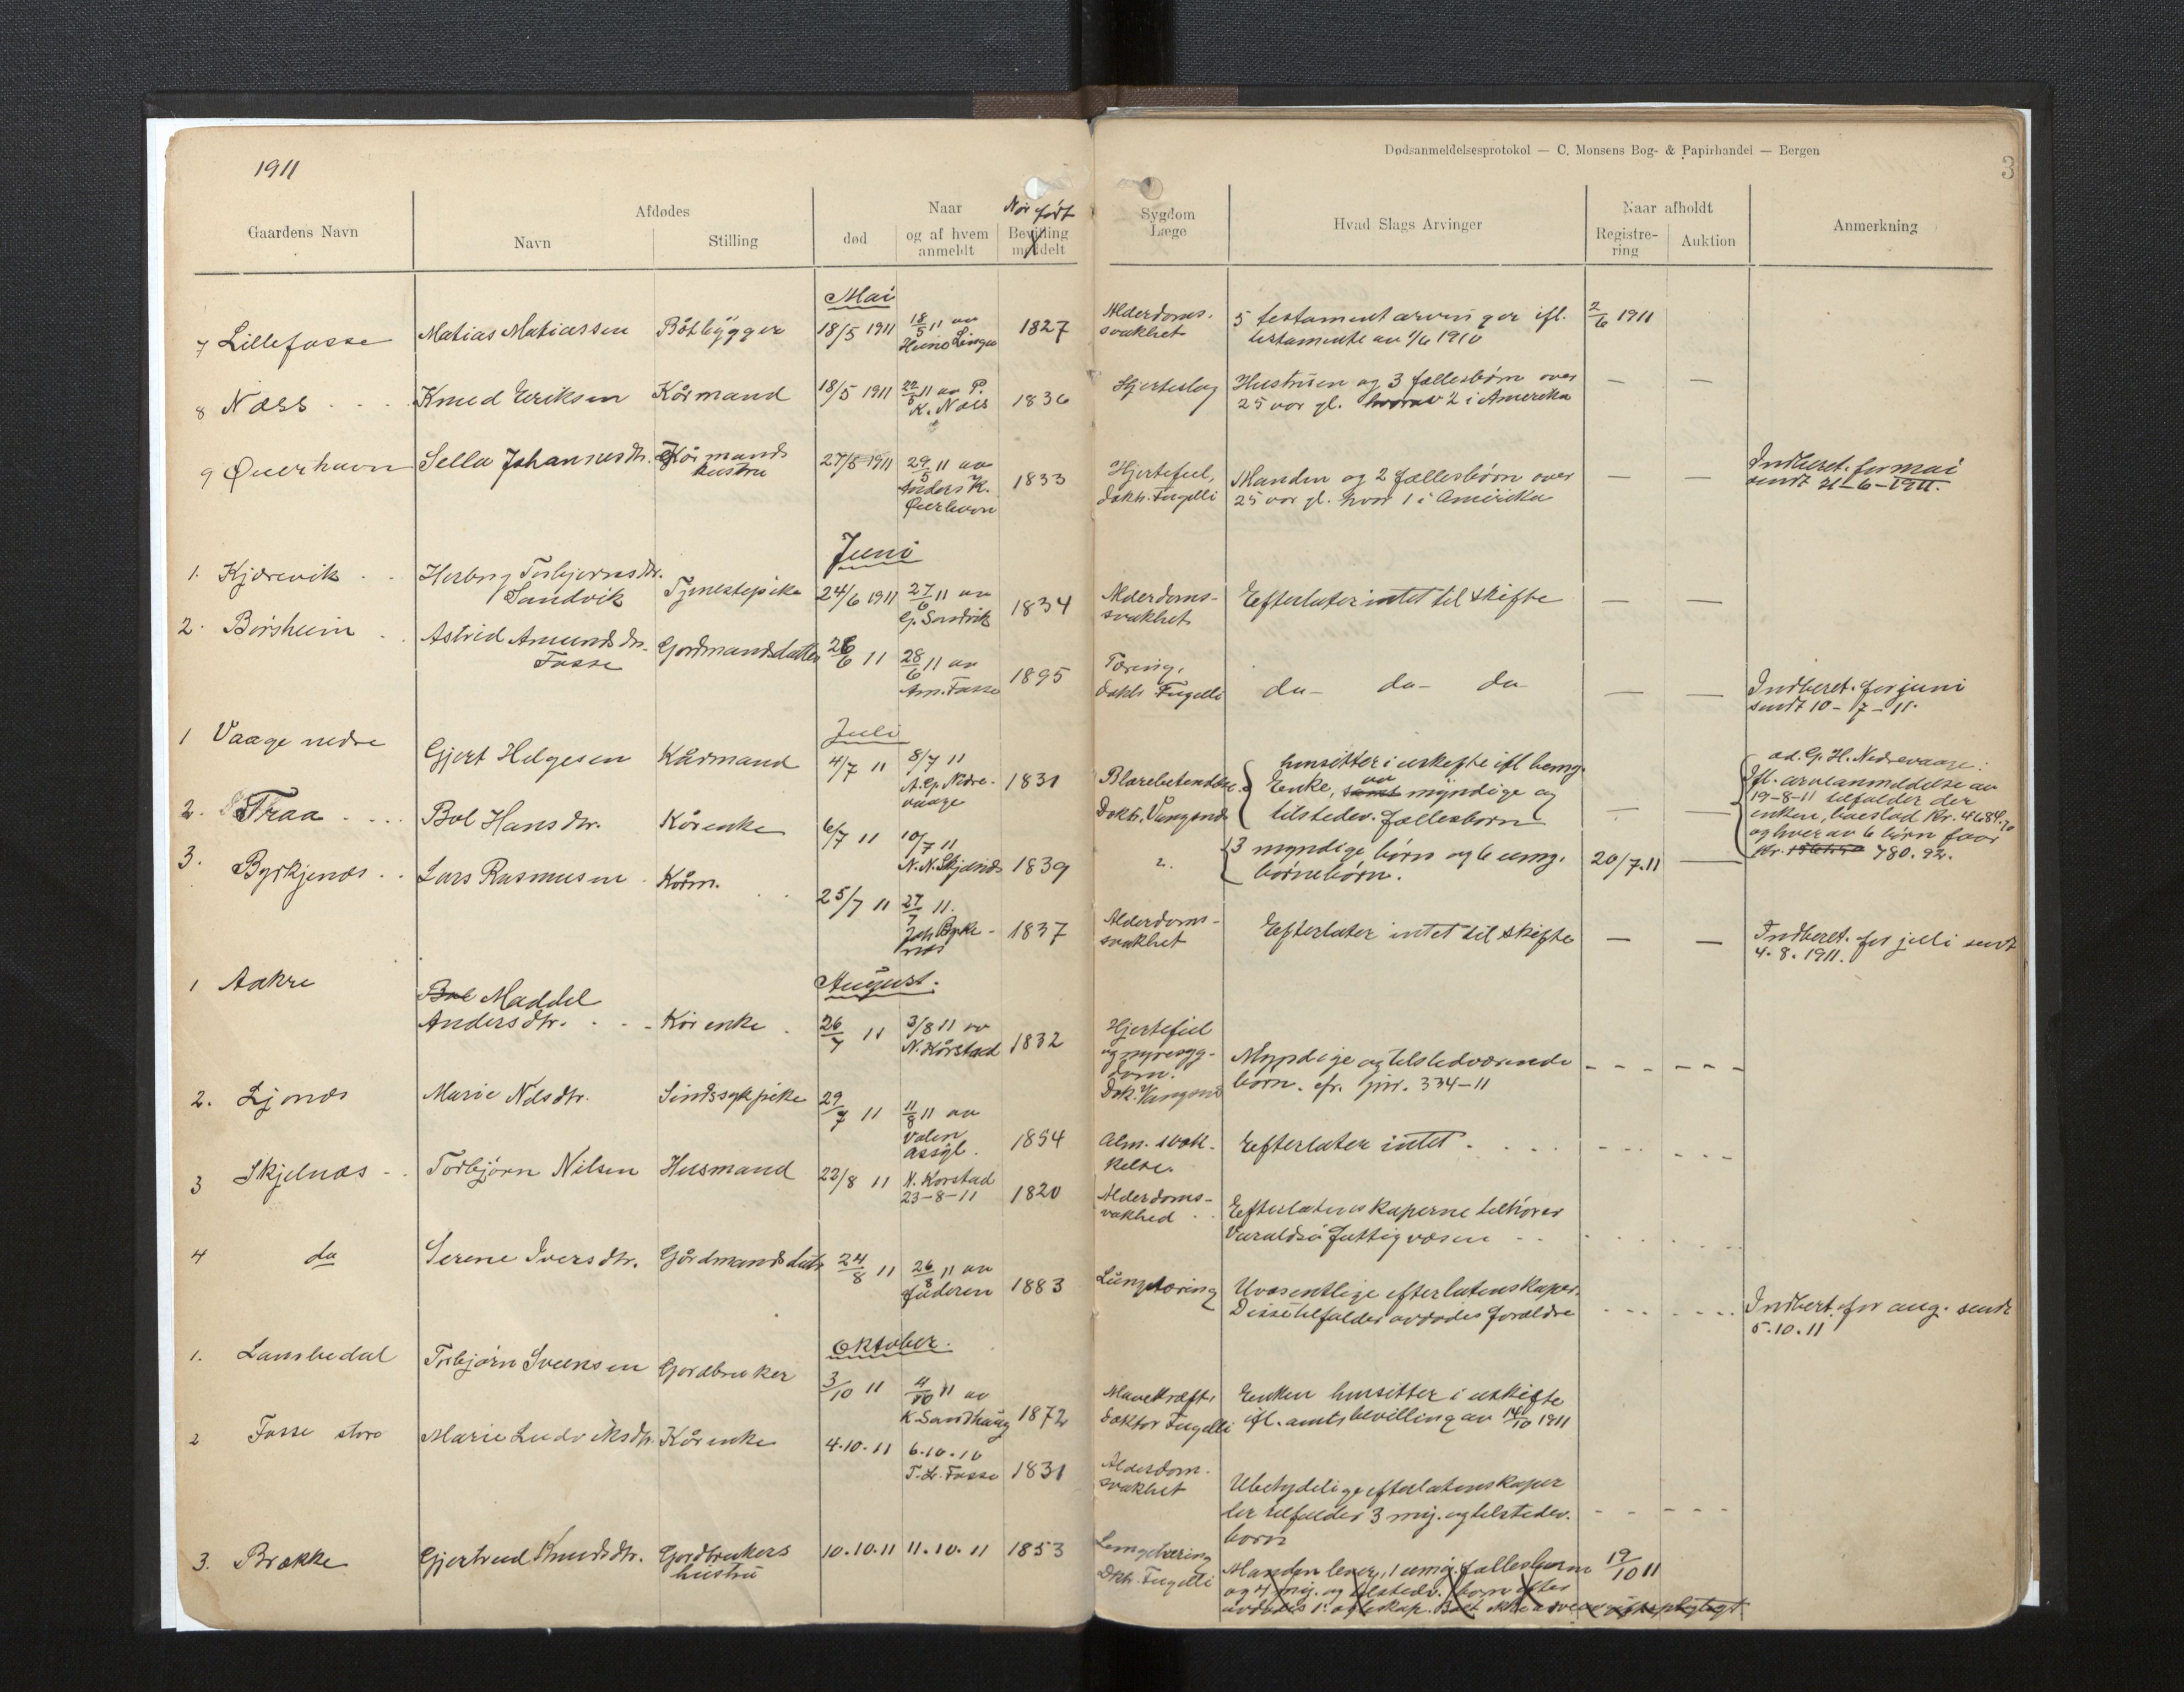 1911
Dødsanmeldelsesprotokol — C. Monsens Bog- & Papirhandel — Bergen
3
Gaardens Navn
Afdødes
Navn
Stilling
Naar
død
og af hvem anmeldt
Når født
Bevilling meddelt
Sygdom
Læge
Hvad Slags Arvinger
Naar afholdt
Registrering
Auktion
Anmerkning
Mai
7 Lillefosse Matias Matiassen Båtbygger 18/5 1911 18/5 11 av 1827 Alderdoms- 5 testamentarvinger ifl. 2/6 1911
svakhet testamente av 1/6 1910
8 Næss Knud Eriksen Kårmand 18/5 1911 22/5 11 av P. 1836 Hjerteslag Hustruen og 3 fællesbørn over — —
K. Næs 25 aar gl. hvorav 2 i Amerika
9 Øierhavn Sella Johannesdtr. Kårmands 27/5 1911 29/5 11 av 1833 Hjertefeil, Manden og 2 fællesbørn over — — Indberet. for mai
hustru Anders K. Dokt. Fugelli 25 aar gl. hvor 1 i Amerika sendt 21-6-1911.
Øierhavn
Juni
1. Kjærevik Herborg Torbjørnsdtr. Tjenestepike 24/6 1911 27/6 11 av 1834 Alderdoms- Efterlater intet til skifte — —
Sandvik G. Sandvik svakhet
2. Børsheim Astrid Amundsdtr. Gardmandsdatter 26/6 11 28/6 11 av 1895 Tæring, do- do- do — — Indberet. for juni
Fosse Am. Fosse Dokt. Fugelli sendt 10-7-11.
Juli
1 Vaage nedre Gjert Helgesen Kårmand 4/7 11 8/7 11 1831 hensitter i uskifte ifl bemg. ad. G. H. Nedrevaage:
A. G. Nedre- Enke, av myndige og Ifl. arveanmeldelse av
vaage Dokt. Vangsnes tilstedev. fællesbørn — — 19-8-11 tilfalder der
enken, boeslod Kr. 4684.70
og hver av 6 børn faar
Kr. 780.92.
2. Traa Bol Hansdtr. Kårenke 6/7 11 10/7 11 1839 3 myndige børn og 6 umg. 20/7.11 —
N. N. Skjelnæs børnebørn.
3. Byrkjenæs Lars Rasmusen Kårm. 25/7 11 27/7 11. 1837 Alderdoms- Efterlater intet til skifte — — Indberet. for juli sendt
svakhet 4.8.1911.
August.
1 Aakre Bol Maddel Kårenke 26/7 11 3/8 11 av 1832 Hjertefeil Myndige og tilstedværende
Andersdtr. N. Kårstad og nyresyg- børn. cfr. jnr. 334-11
dom.
Dok. Vangsnes
2. Ljonæs Marie Nilsdtr. Sindssyk pike 29/7 11 11/8 11 av 1854 Alm. svæk- Efterlater intet.
Valen kelse.
assyl.
3 Skjelnæs Torbjørn Nilsen Husmand 22/8 11 N. Korstad 1820 Alderdoms- Efterlatenskaperne tilhører
23-8-11 vakhed Varaldsø fattigvæsen
4 do Serene Iversdtr. Gårdmandsdatr 24/8 11 26/8 11 av 1883 Lungetæring Uvæsentlige efterlatenskaper.
faderen Disse tilfalder avdødes forældre Indbert. for aug. sendt
5.10.11
Oktober.
1. Lambedal Torbjørn Sveensen Gardbruker 3/10 11 4/10 11 av 1872 Mavekræft, Enken hensitter i uskifte
K. Sandhaug Doktor Fugelli ifl. amtsbevilling av 14/10 1911
2 Fosse store Marie Ludviksdtr. Kårenke 4.10.11 6.10.10 1831 Alderdom. Ubetydelige efterlatenskaper
T. L. Fosse svakhet ler tilfalder 3 myj. og tilstedev.
børn
3. Brække Gjertrud Knudsdtr. Gardbrukers 10.10.11 11.10.11 1853 Lungetæring Manden lever, 1 umyg. fællesbarn 19/10 11
hustru Dokt. Fugelli og 4 myj. og tilstedv. børn efter
avdødes 1. egteskap. Boet ikke